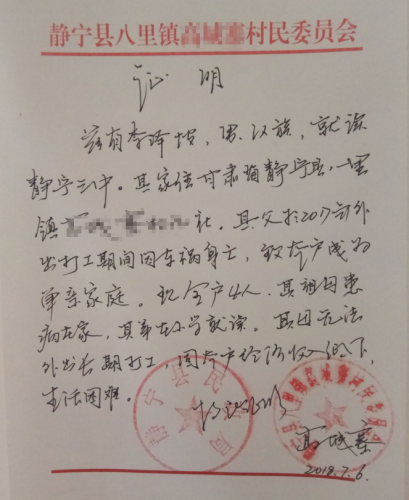 静宁县八里镇 村民委员会
证 明
兹有李泽 ，男，汉族，就读
静宁三中。其家住甘肃省静宁县八里
镇 社。其父于2017年外
出打工期间因车祸身亡，致本户成为
单亲家庭。现全户4人，其祖因患
病在家，其弟在小学就读。其因无法
外出长期打工，因本户经济收入低下，
生活困难。
情况属实
静宁县民政局
高城寨
2018.7.6.